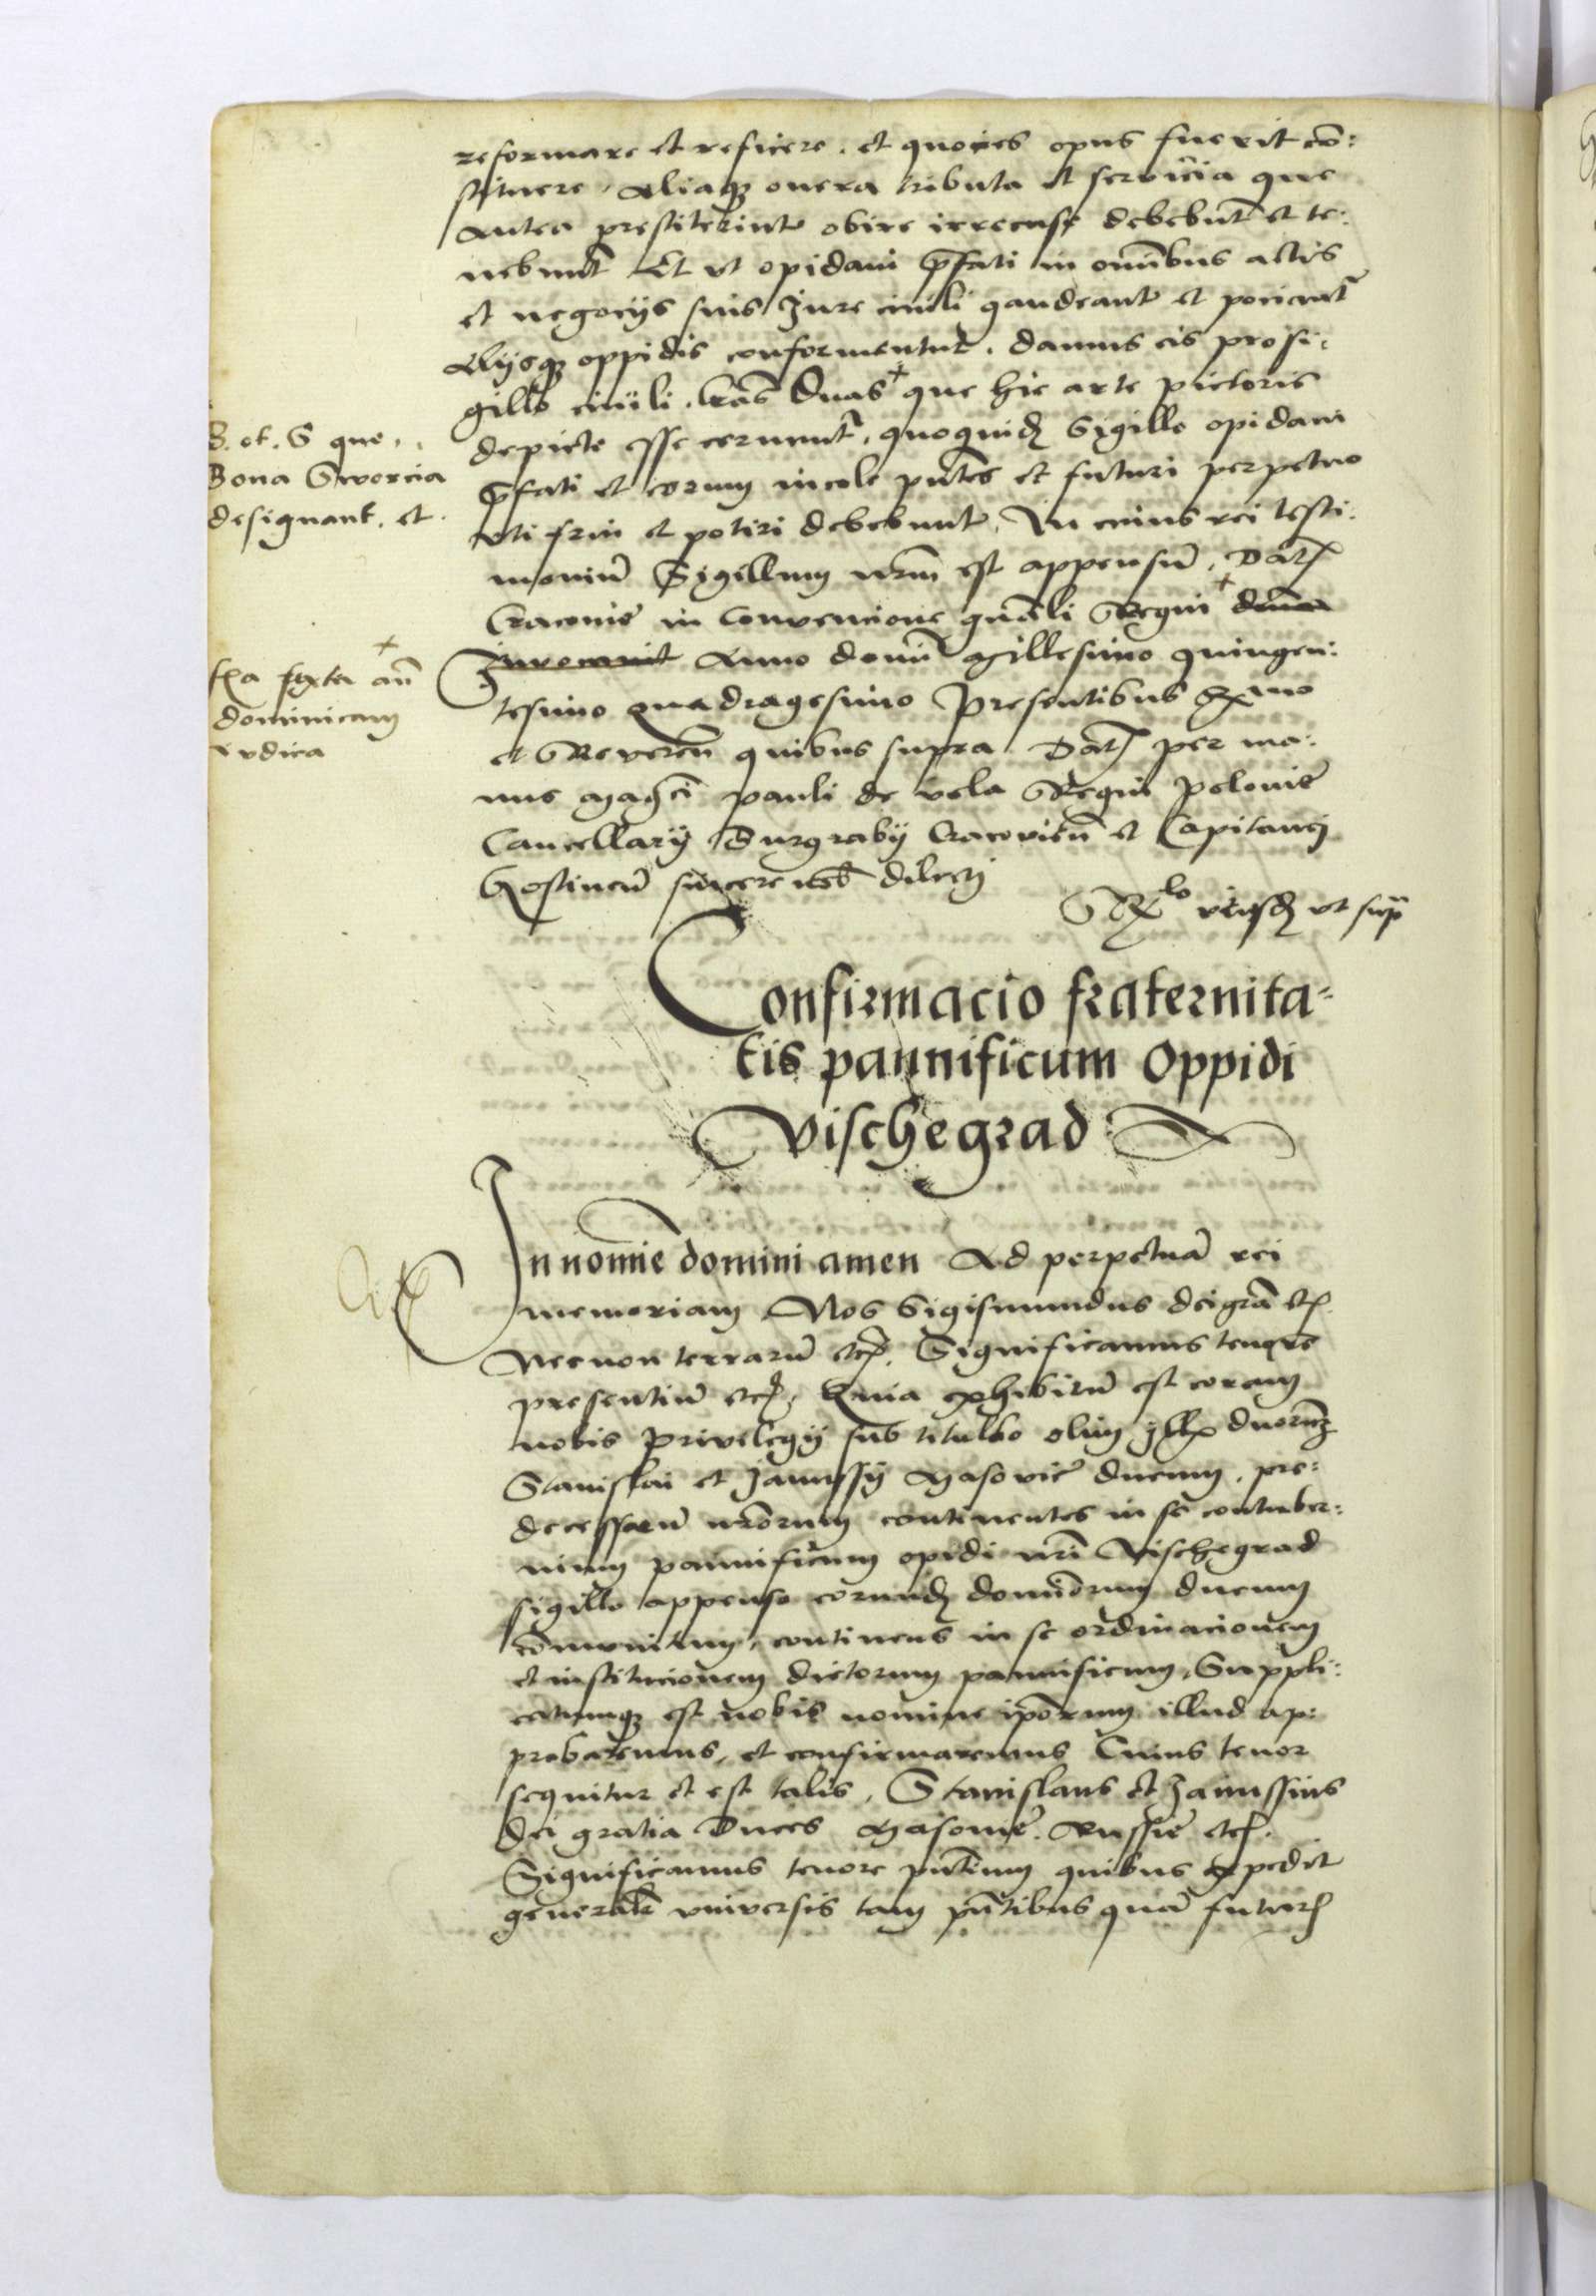 reformare et reficere. et quocies opus fuerit cō:
stituere. Aliaqꝫ onera tributa et servicia que
antea prestiterint obire irrecuse debebūt et te:
nebunt̄ Et vt opidani p̄fati in om̄ibus actis
et negocijs suis Jure ciuili gaudeant et pociant̄
Alijsqꝫ oppidis conformentur. damus eis pro si:
gillo ciuili. l̄ras duas + que hic arte pictoris
B. et. S que
depicte esse cernunt̄, quoquidē Sigillo opidani
Bona Sworcia
p̄fati et eorum incole p̄ntes et futuri perpetuo
designant. et
vti frui et potiri debebunt. In cuius rei testi:
monium̄ Sigillum nr̄m est appensū. Dat̄
Cracovie in Convencione gn̄ali Regni +
fr̄a sexta an̄ +
Anno domī Millesimo quingen:
dominicam
tesimo quadragesimo Presentibus
Judica
et Reveren̄ quibus supra. Dat̄ per ma:
nus Mag̃ci Pauli de vola Regni Polonie
Cancellarij Burgrabij Cracovien̄ et Capitanej
Gostinen̄ sincere nob̄ dilecti
vt supr̄
Confirmacio fraternita-
tis pannificum Oppidi
Vischegrad
In nomīe domini amen Ad perpetuā rei
memoriam Nos Sigismundus dei grā etc̄.
Necnon terrarū etc̄. Significamus tenore
presentiū etc̄. Quia exhibitū est coram
nobis Privelegij sub titulo olim Ill. ducum
Stanislai et Janussij Masovie ducum. pre:
decessorū nr̄orum continentes in se contuber:
nium pannificum opidi nr̄i Vischegrad
sigillo appenso eorundē dominorum ducum
cōmunitum, continens in se ordinacionem
et institucionem dictorum pannificum, Suppli:
catumqꝫ est nobis nomine ip̄orum illud ap:
probaremus, et confirmaremus Cuius tenor
sequitur et est talis. Stanislaus et Janussius
dei gratia Duces Masovie. Russie etc̄.
Significamus tenore p̄ntium quibus expedit
generalit̄ vniversis tam p̄ntibus quā futur̄